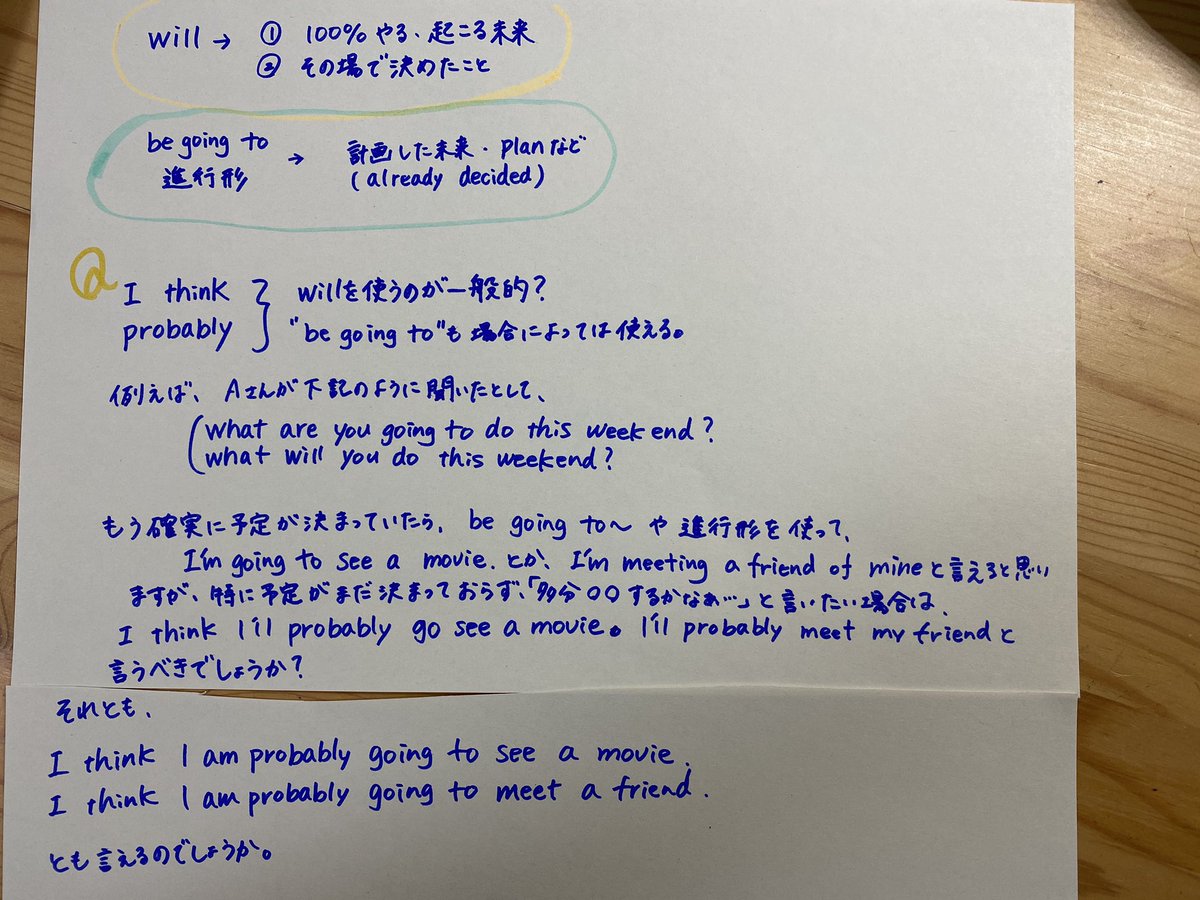 will → ① 100% やる・起こる未来
② その場で決めたこと
be going to
進行形
→ 計画した未来・planなど
(already decided)
Q
I think
probably
willを使うのが一般的?
"be going to"も場合によっては使える。
例えば、Aさんが下記のように聞いたとして、
what are you going to do this weekend?
what will you do this weekend?
もう確実に予定が決まっていたら、be going to~や進行形を使って、
I'm going to see a movie.とか、I'm meeting a friend of mineと言えると思い
ますが、特に予定がまだ決まっておらず、「多分〇〇するかなぁ…」と言いたい場合は、
I think I'll probably go see a movie。I'll probably meet my friendと
言うべきでしょうか?
それとも、
I think I am probably going to see a movie.
I think I am probably going to meet a friend.
とも言えるのでしょうか。